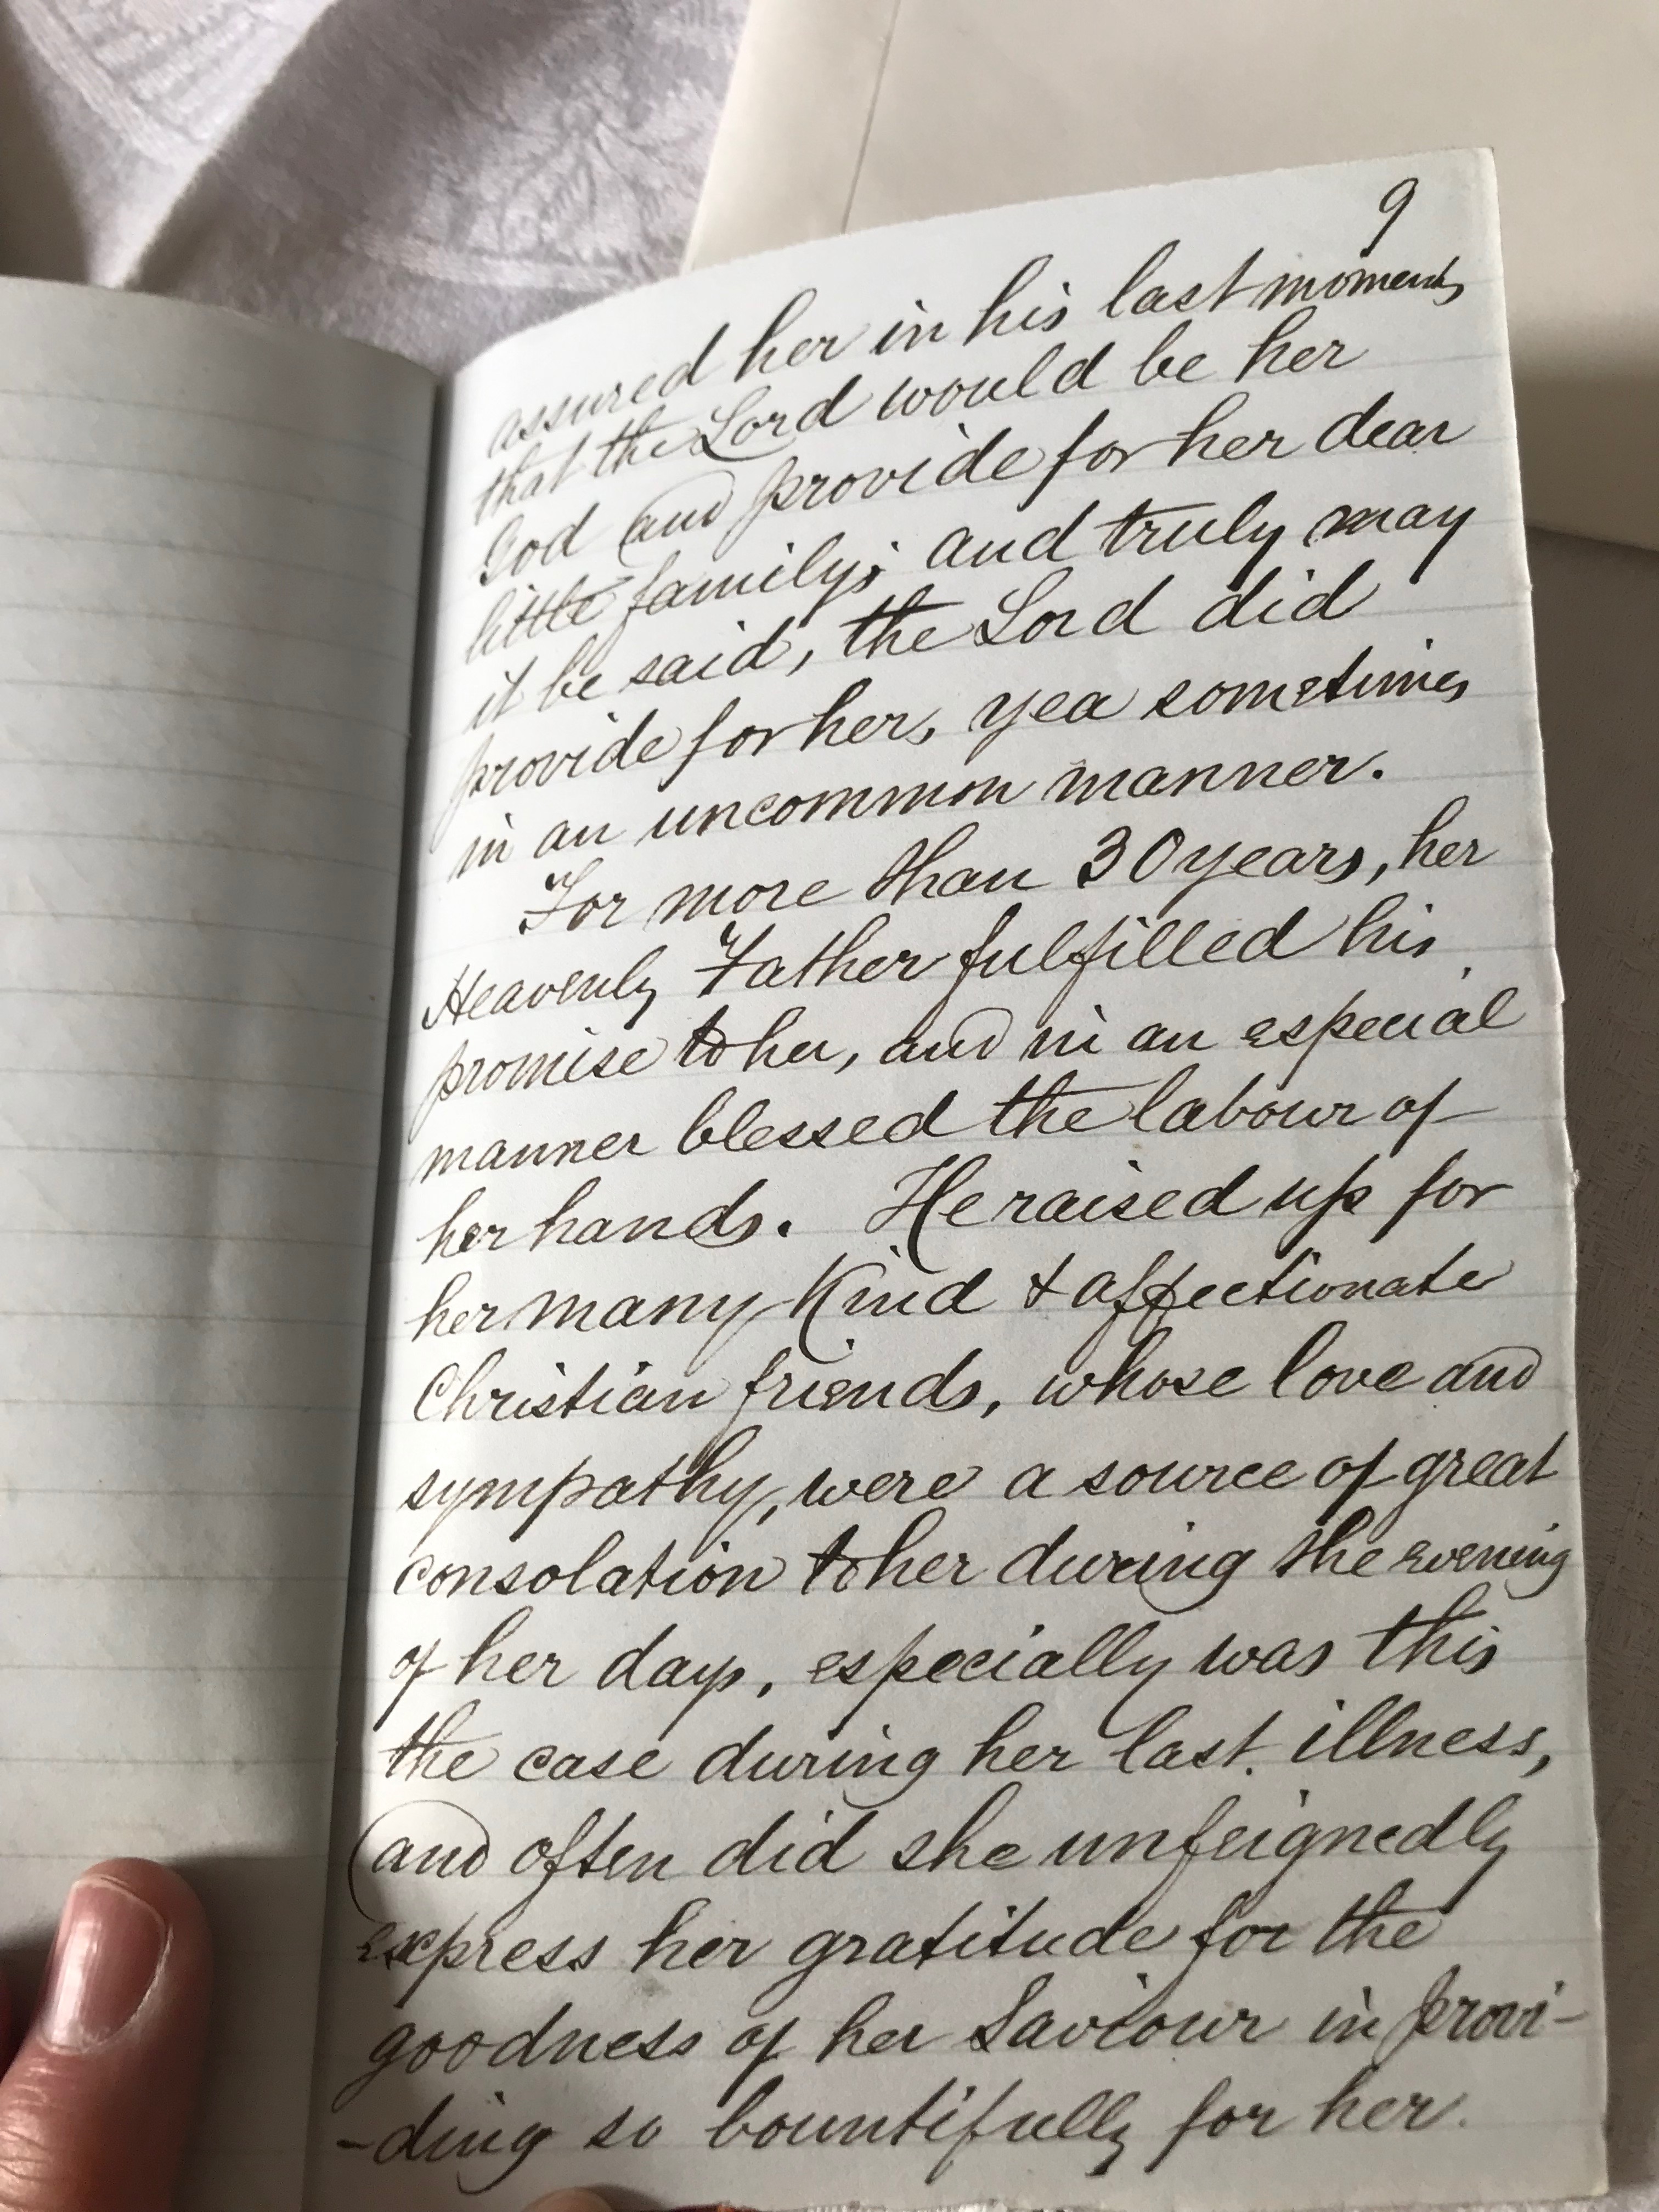 9
assured her in his last moments
that the Lord would be her
God and provide for her dear
little family; and truly may
it be said, the Lord did
provide for her, yea sometimes
in an uncommon manner.
For more than 30 years, her
Heavenly Father fulfilled his
promise to her, and in an especial
manner blessed the labour of
her hands. He raised up for
her many kind & affectionate
Christian friends, whose love and
sympathy, were a source of great
consolation to her during the evening
of her days, especially was this
the case during her last illness,
and often did she unfeignedly
express her gratitude for the
goodness of her Saviour in provi-
-ding so bountifully for her.